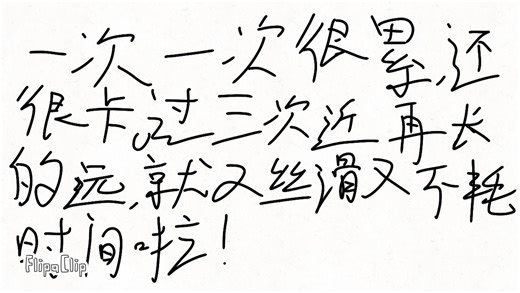 一次一次很累,还
很卡,过三次近再长
的远,就又丝滑又不耗
时间啦!
FlipaClip